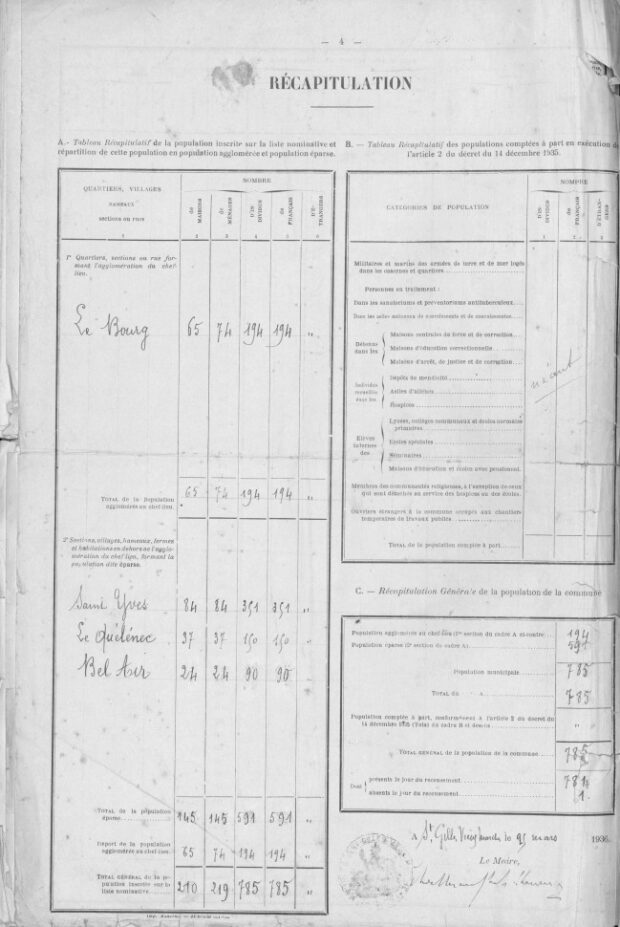 — 4 —
RÉCAPITULATION
A.- Tableau Récapitulatif de la population inscrite sur la liste nominative et
répartition de cette population en population agglomérée et population éparse.
QUARTIERS, VILLAGES
HAMEAUX
sections ou rues
NOMBRE
de MAISONS
de MÉNAGES
D'IN-DIVIDUS
de FRANÇAIS
D'É-TRANGERS
1 2 3 4 5 6
1° Quartiers, sections ou rue for-
mant l'agglomération du chef-
lieu.
Le Bourg 65 74 194 194 "
TOTAL de la population
agglomérée au chef-lieu. 65 74 194 194 "
2° Sections, villages, hameaux, fermes
et habitations en dehors de l'agglo-
mération du chef-lieu, formant la
population dite éparse.
Saint Yves 84 84 351 351 "
Le Quélénec 37 37 150 150 "
Bel Air 24 24 90 90 "
TOTAL de la population
éparse 145 145 591 591 "
Report de la population
agglomérée au chef-lieu. 65 74 194 194 "
TOTAL GÉNÉRAL de la po-
pulation inscrite sur la
liste nominative 210 219 785 785 "
B. — Tableau Récapitulatif des populations comptées à part en exécution de
l'article 2 du décret du 14 décembre 1935.
CATÉGORIES DE POPULATION
NOMBRE
D'IN-DIVIDUS
de FRANÇAIS
D'ÉTRAN-GERS
1 2 3
Militaires et marins des armées de terre et de mer logés
dans les casernes et quartiers
Personnes en traitement :
Dans les sanatoriums et preventoriums antituberculeux
Détenus dans les
Maisons centrales de force et de correction
Maisons d'éducation correctionnelle
Maisons d'arrêt, de justice et de correction
Individus recueillis dans les
Dépôts de mendicité
Asiles d'aliénés
Hospices
néant
Elèves internes des
Lycées, collèges communaux et écoles normales
primaires
Ecoles spéciales
Séminaires
Maisons d'éducation et écoles avec pensionnat
Membres des communautés religieuses, à l'exception de ceux
qui sont détachés au service des hospices ou des écoles.
Ouvriers étrangers à la commune occupés aux chantiers
temporaires de travaux publics
TOTAL de la population comptée à part
C. — Récapitulation Générale de la population de la commune
Population agglomérée au chef-lieu (1re section du cadre A ci-contre) 194
Population éparse (2e section du cadre A) 591
Population municipale 785
TOTAL du A 785
Population comptée à part, conformément à l'article 2 du décret du
14 décembre 1935 (Total du cadre B ci-dessus) "
TOTAL GÉNÉRAL de la population de la commune 785
Dont
présents le jour du recensement 784
absents le jour du recensement 1
A St Gilles Vieux Marché le 25 mars 1936
Le Maire,